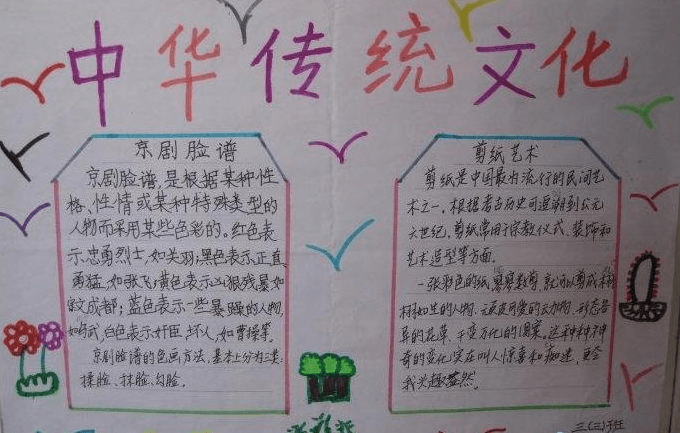 中华传统文化
京剧脸谱
京剧脸谱,是根据某种性
格、性情或某种特殊类型的
人物而采用某些色彩的。红色表
示忠勇烈士,如关羽;黑色表示正直、
勇猛,如张飞;黄色表示凶狠残暴如
宇文成都;蓝色表示一些暴躁的人物,
如马武,白色表示奸臣、坏人,如曹操等。
京剧脸谱的色画方法,基本上分为三类:
揉脸、抹脸、勾脸。
剪纸艺术
剪纸是中国最为流行的民间艺
术之一,根据考古历史可追溯到公元
六世纪,剪纸常用于宗教仪式、装饰和
艺术造型等方面。
一张彩色的纸,就可以剪成栩
栩如生的人物、可爱的动物、形态各
异的花草、千变万化的图案。这种种神
奇的变化实在叫人惊喜和痴迷,更令
我兴趣盎然。
三(三)班